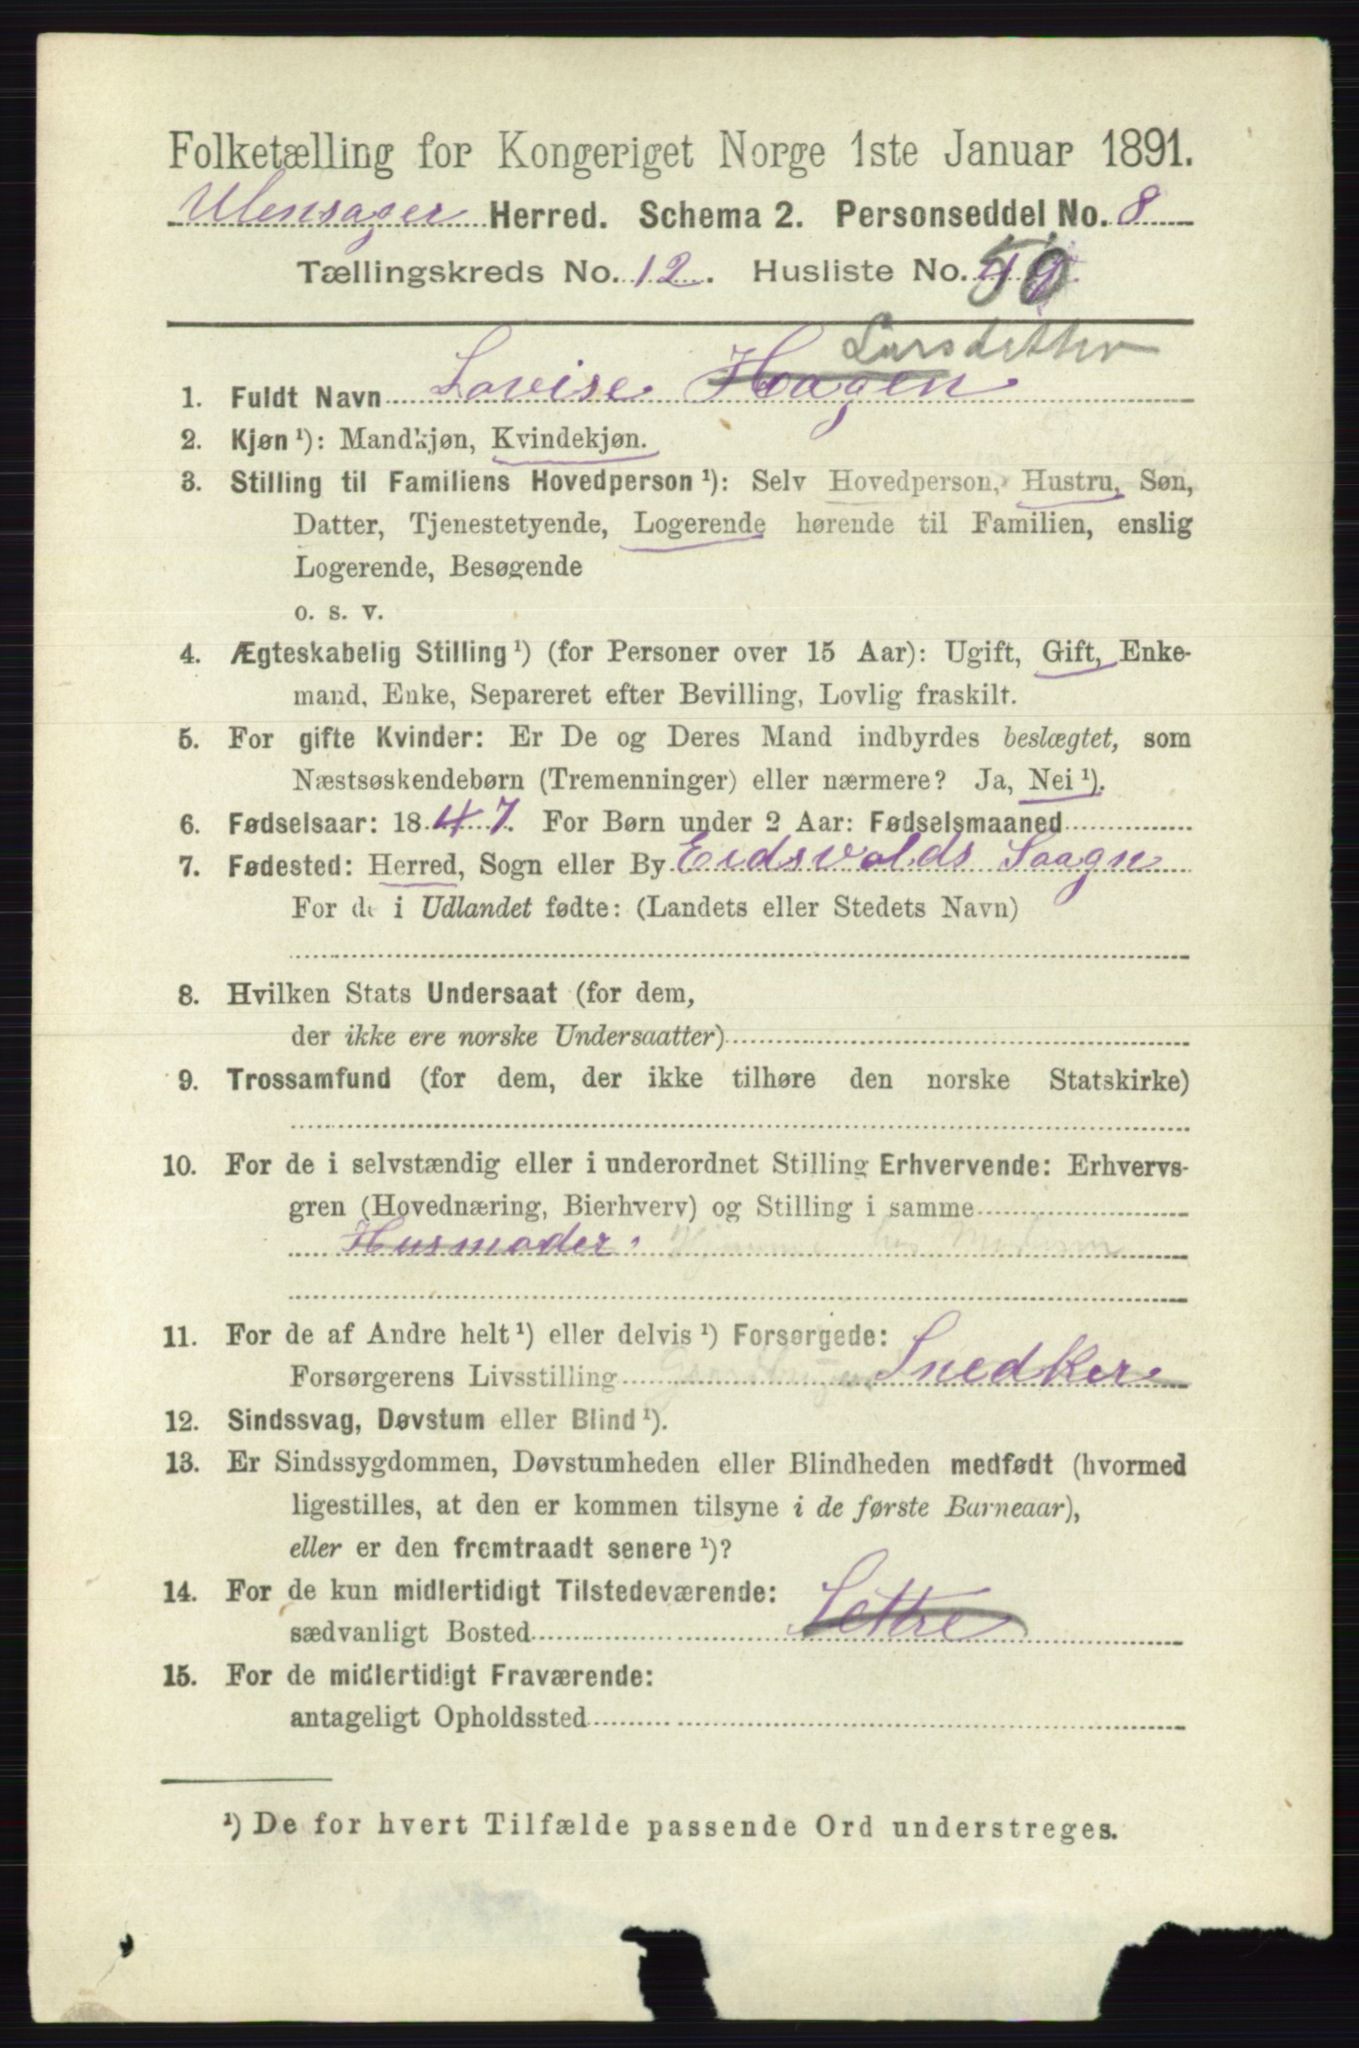 Folketælling for Kongeriget Norge 1ste Januar 1891.
Ulensager Herred. Schema 2. Personseddel No. 8
Tællingskreds No. 12. Husliste No. 50
Larsdatter
1. Fuldt Navn Lovise Haagen
2. Kjøn ¹): Mandkjøn, Kvindekjøn.
3. Stilling til Familiens Hovedperson ¹): Selv Hovedperson, Hustru, Søn,
Datter, Tjenestetyende, Logerende hørende til Familien, enslig
Logerende, Besøgende
o. s. v.
4. Ægteskabelig Stilling ¹) (for Personer over 15 Aar): Ugift, Gift, Enke-
mand, Enke, Separeret efter Bevilling, Lovlig fraskilt.
5. For gifte Kvinder: Er De og Deres Mand indbyrdes beslægtet, som
Næstsøskendebørn (Tremenninger) eller nærmere? Ja, Nei ¹).
6. Fødselsaar: 1847. For Børn under 2 Aar: Fødselsmaaned
7. Fødested: Herred, Sogn eller By Eidsvolds Saagn
For de i Udlandet fødte: (Landets eller Stedets Navn)
8. Hvilken Stats Undersaat (for dem,
der ikke ere norske Undersaatter)
9. Trossamfund (for dem, der ikke tilhøre den norske Statskirke)
10. For de i selvstændig eller i underordnet Stilling Erhvervende: Erhvervs-
gren (Hovednæring, Bierhverv) og Stilling i samme
Husmoder. Hjemme hos
11. For de af Andre helt ¹) eller delvis ¹) Forsørgede:
Forsørgerens Livsstilling Snedker
12. Sindssvag, Døvstum eller Blind ¹).
13. Er Sindssygdommen, Døvstumheden eller Blindheden medfødt (hvormed
ligestilles, at den er kommen tilsyne i de første Barneaar),
eller er den fremtraadt senere ¹)?
14. For de kun midlertidigt Tilstedeværende:
sædvanligt Bosted
15. For de midlertidigt Fraværende:
antageligt Opholdssted
¹) De for hvert Tilfælde passende Ord understreges.